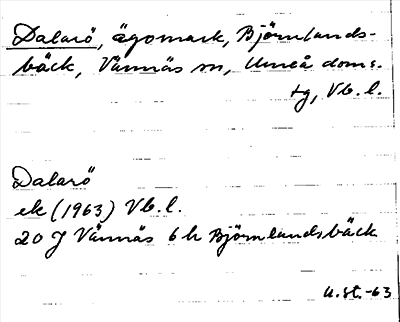 Dalarö, ägomark, Björnlands-
bäck, Vännäs sn, Umeå doms.
tg, Vb. l.
Dalarö
ek (1963) Vb. l.
20 J Vännäs 6 h Björnlandsbäck
u. st. -63